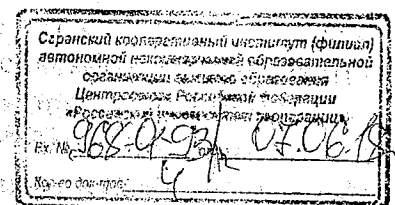 Саранский кооперативный институт (филиал)
автономной некоммерческой образовательной
организации высшего образования
Центросоюза Российской Федерации
«Российский университет кооперации»
Вх. № 07.06.18
Кол-во док-тов: 4